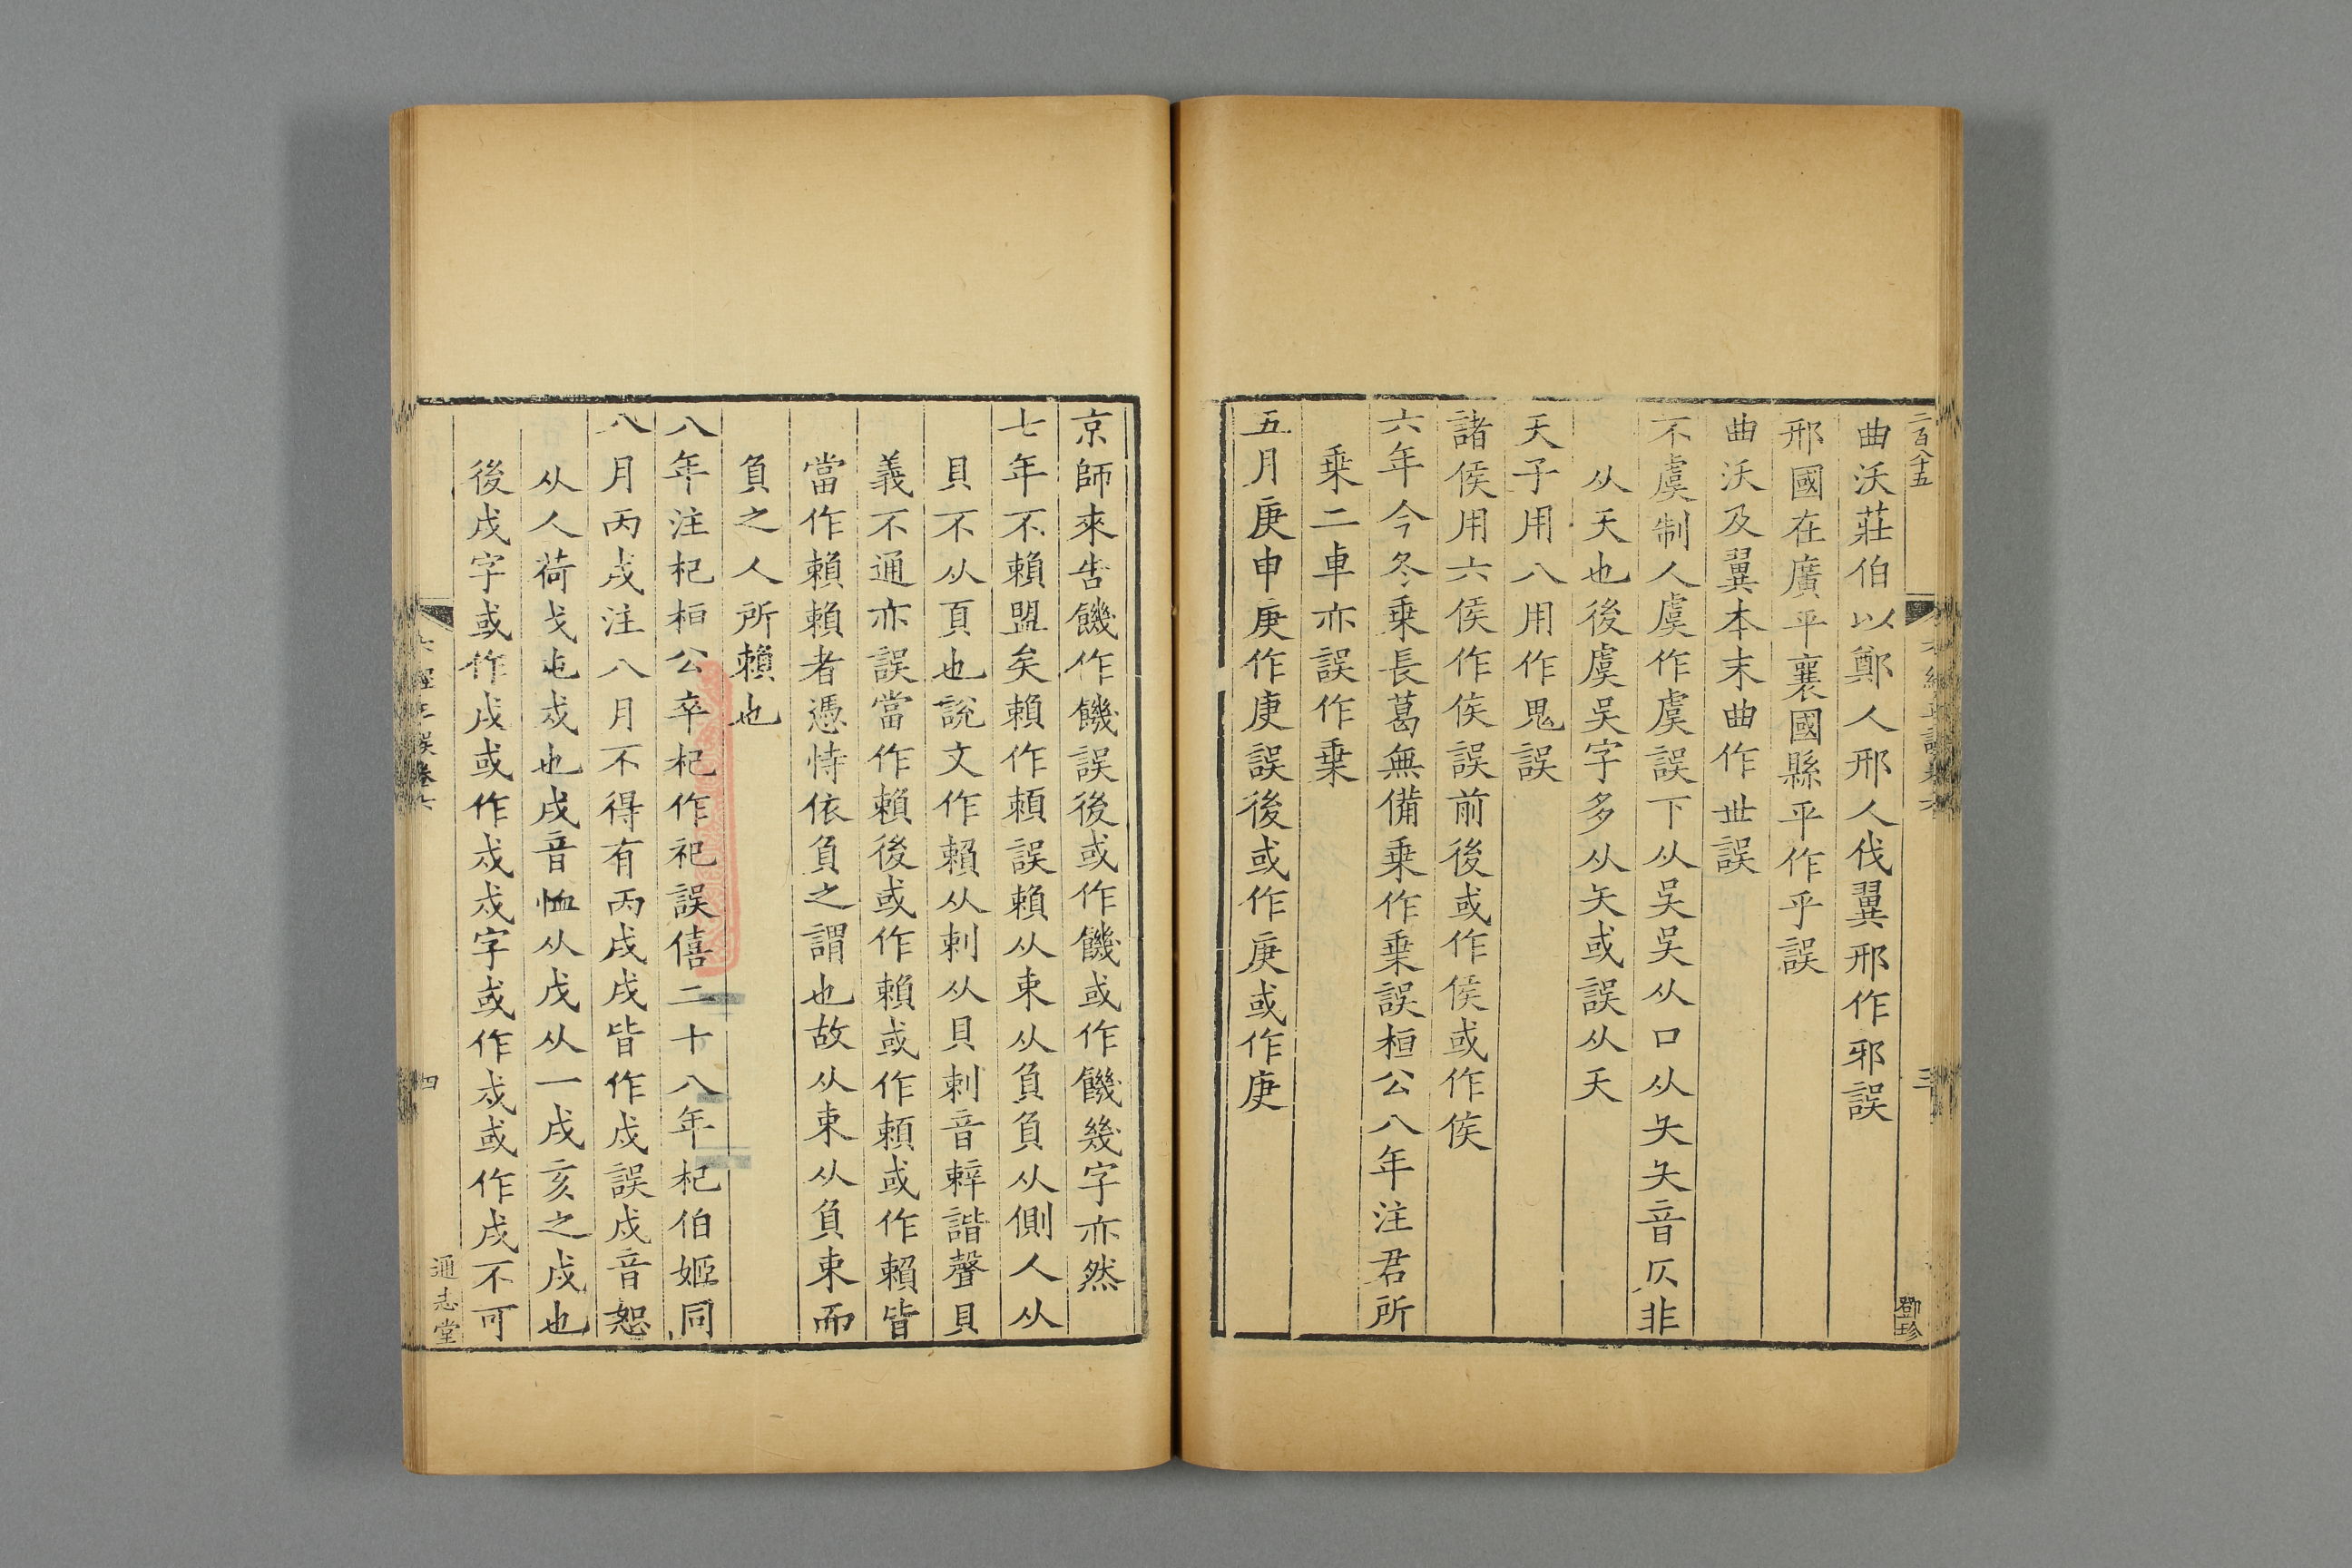 二百八十五
六經正誤卷六
三
鄧珍
曲沃莊伯以鄭人邢人伐翼邢作邪誤
邢國在廣平襄國縣平作乎誤
曲沃及翼本末曲作𠀍誤
不虞制人虞作虞誤下从吳吳从口从夨夨音仄非
从天也後虞吳字多从夨或誤从天
天子用八用作鬼誤
諸侯用六侯作矦誤前後或作侯或作矦
六年今冬乗長葛無備乗作乗誤桓公八年注君所
乗二車亦誤作乗
五月庚申庚作庚誤後或作庚或作庚
京師來告饑作饑誤後或作饑或作饑幾字亦然
七年不賴盟矣賴作頼誤賴从束从負負从側人从
貝不从頁也說文作賴从剌从貝剌音辢諧聲貝
義不通亦誤當作賴後或作賴或作頼或作賴皆
當作賴賴者憑恃依負之謂也故从束从負束而
負之人所賴也
八年注杞桓公卒杞作祀誤僖二十八年杞伯姬同
八月丙戌注八月不得有丙戌戌皆作戍誤戍音恕
从人荷戈屯戍也戌音恤从戊从一戌亥之戌也
後戌字或作戌或作戍戍字或作戍或作戌不可
六經正誤卷六
四
通志堂